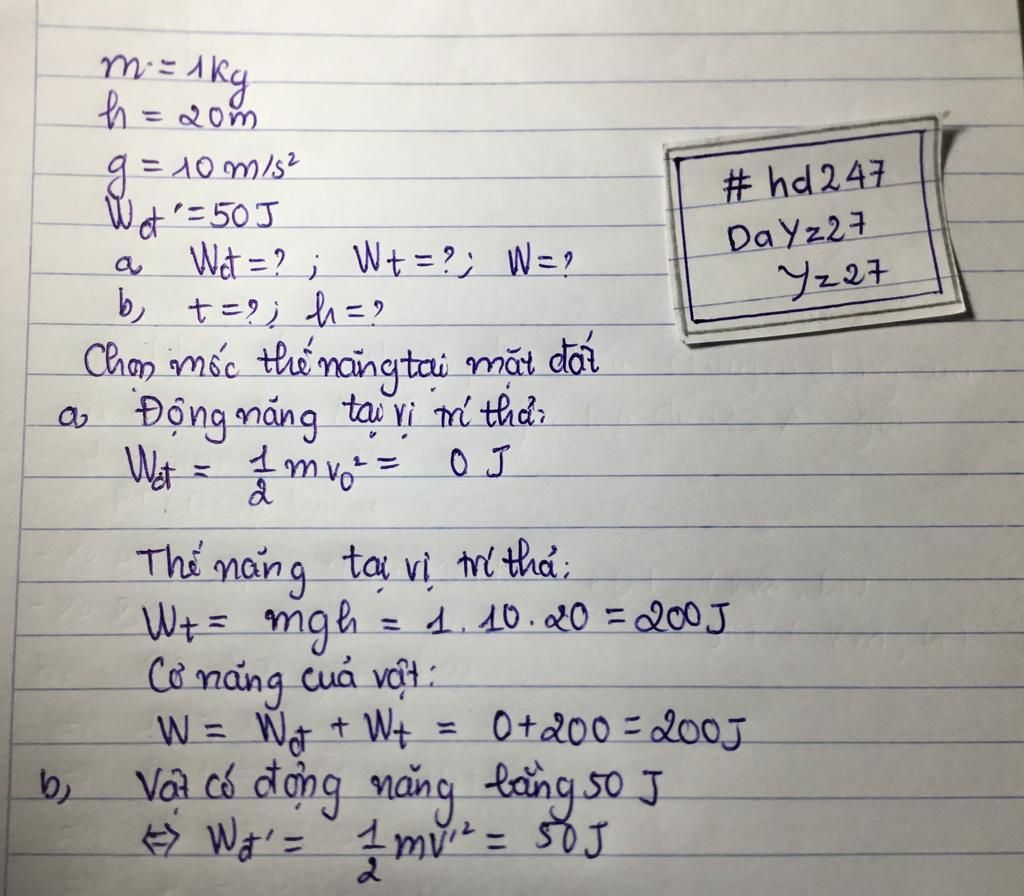 m = 1kg
h = 20m
g = 10 m/s²
Wđ' = 50J
a Wđ = ? ; Wt = ?; W = ?
b, t = ?; h = ?
Chọn mốc thế năng tại mặt đất
a Động năng tại vị trí thả:
Wđ = 1/2 mv₀² = 0 J
Thế năng tại vị trí thả:
Wt = mgh = 1.10.20 = 200J
Cơ năng của vật:
W = Wđ + Wt = 0+200 = 200J
b, Vật có động năng bằng 50 J
⇔ Wđ' = 1/2 mv'² = 50J
# hd247
DaYz27
Yz27